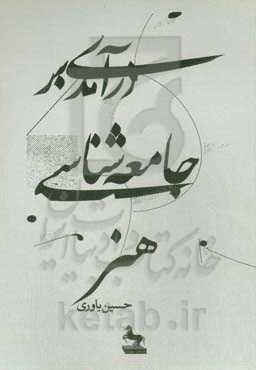 درآمدی بر
جامعه‌شناسی
هنر
حسین یاوری
خانه کتاب و ادبیات ایران
ketab.ir